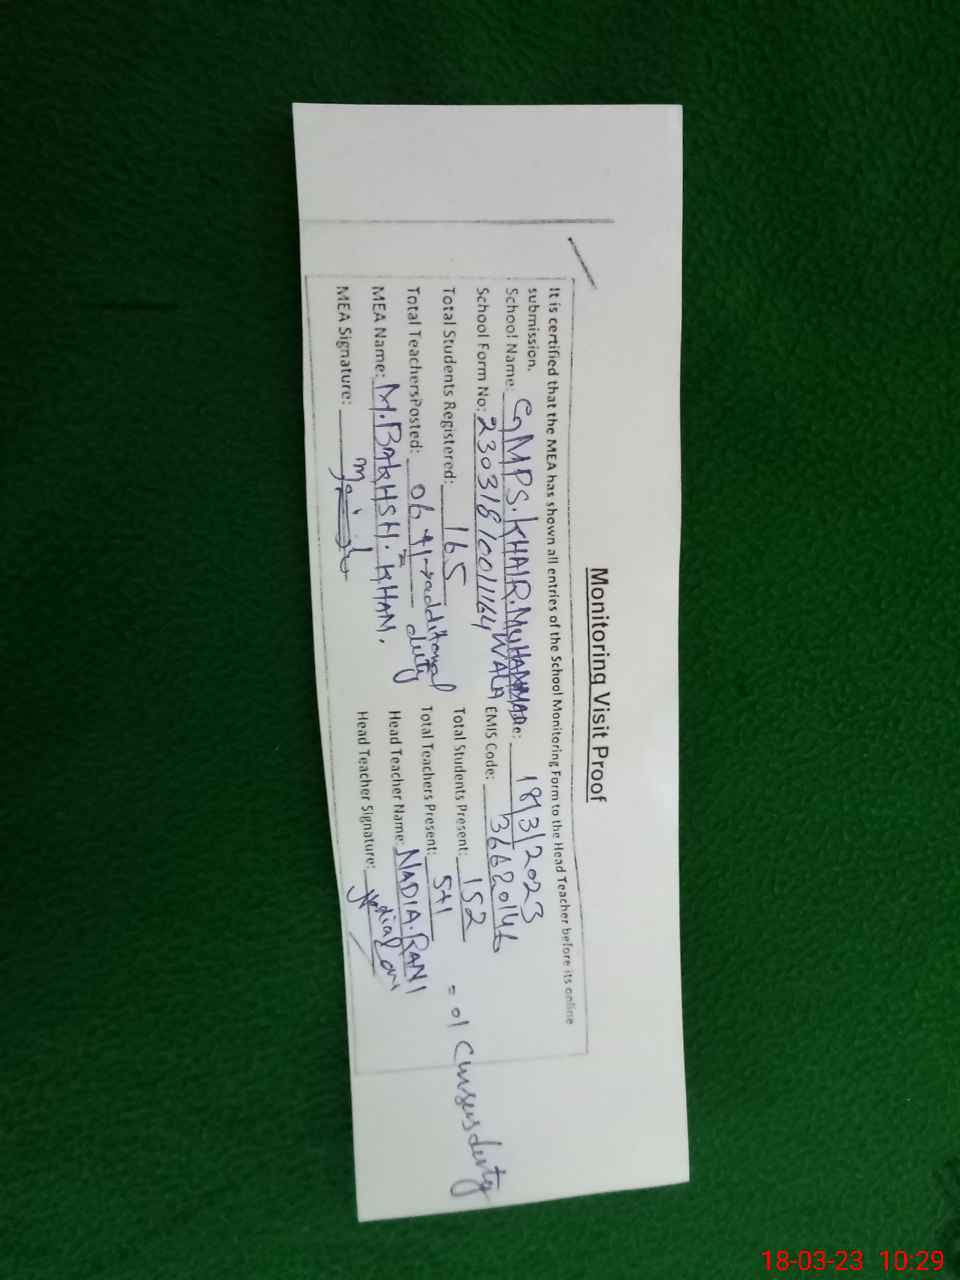 Monitoring Visit Proof
It is certified that the MEA has shown all entries of the School Monitoring Form to the Head Teacher before its online
submission.
School Name: GMPS. KHAIR. MUHAMMAD WALA Date: 18/3/2023
School Form No: 230318100 1164 EMIS Code: 36620146
Total Students Registered: 165 Total Students Present: 152
Total TeachersPosted: 06 +1→additional duty Total Teachers Present: 5+1 = 01 Census duty
MEA Name: M. BAKHSH. KHAN. Head Teacher Name: NADIA. RANI
MEA Signature: Head Teacher Signature: Nadia Rani
18-03-23 10:29